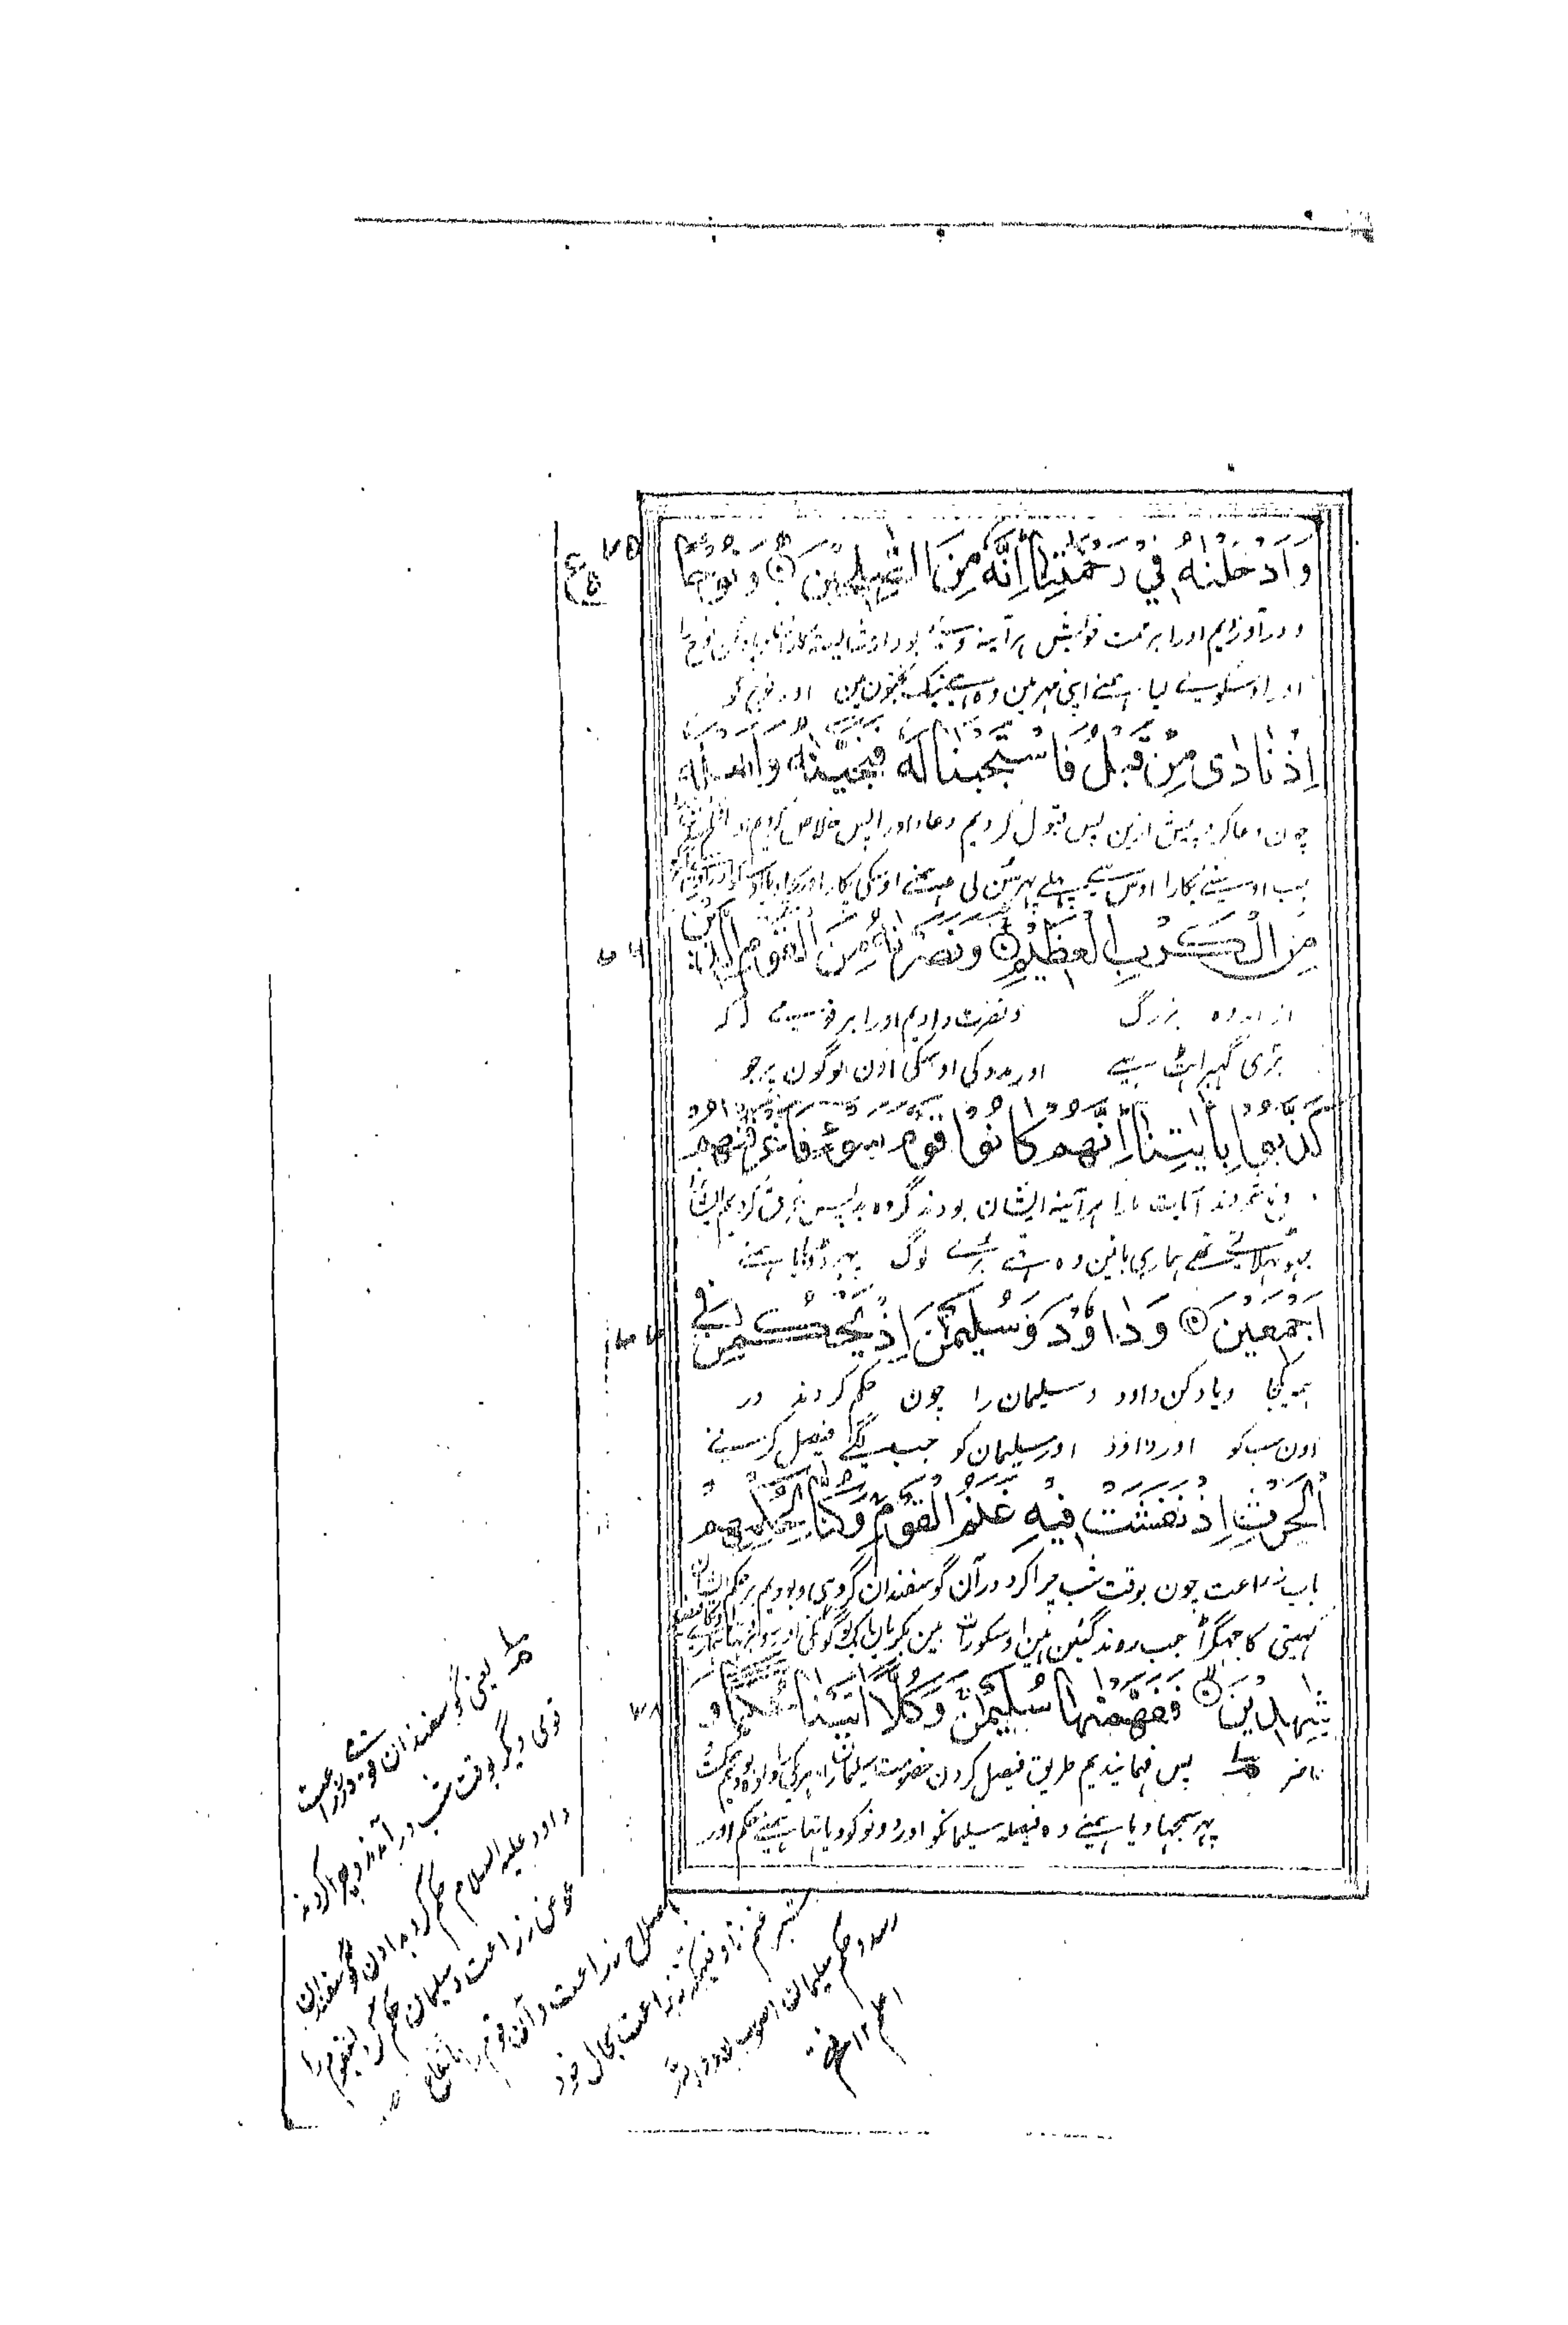 وَاَدْخَلْنٰهُ فِيْ رَحْمَتِنَا اِنَّهٗ مِنَ الصّٰلِحِيْنَ وَنُوْحًا
۷۵
و در آوردیم اورا برحمت خویش هر آینه وی بود از شایسته کاران و یاد کن نوح را
اور اوسکو لیا همنے اپنی مهر مین وه هے نیک بختون مین اور نوح کو
اِذْ نَادٰى مِنْ قَبْلُ فَاسْتَجَبْنَا لَهٗ فَنَجَّيْنٰهُ وَاَهْلَهٗ
چون دعا کرد پیش ازین پس قبول کردیم دعاء اورا پس خلاص کردیم
جب اوسنے پکارا اوس سے پہلے پہر سن لی همنے اوسکی پکار اور بچا دیا
مِنَ الْكَرْبِ الْعَظِيْمِ وَنَصَرْنٰهُ مِنَ الْقَوْمِ الَّذِيْنَ
۷۶
از اندوه بزرگ و نصرت دادیم اورا بر قومیکه
بڑی گهبراهٹ سے اور مدد کی اوسکی اون لوگون پر جو
كَذَّبُوْا بِاٰيٰتِنَا اِنَّهُمْ كَانُوْا قَوْمَ سَوْءٍ فَاَغْرَقْنٰهُمْ
دروغ شمردند آیات مارا هر آینه ایشان بودند گروه بد پس غرق کردیم ایشانرا
جهٹلاتے تهے هماری باتین وه تهے برے لوگ پهر ڈوبایا همنے
اَجْمَعِيْنَ وَدَاوٗدَ وَسُلَيْمٰنَ اِذْ يَحْكُمٰنِ فِي
۷۷
همه یکجا ویاد کن داود و سلیمان را چون حکم کردند در
اون سب کو اور داود اور سلیمان کو جب لگے فیصل کرنے
الْحَرْثِ اِذْ نَفَشَتْ فِيْهِ غَنَمُ الْقَوْمِ وَكُنَّا لِحُكْمِهِمْ
باب زراعت چون بوقت شب چرا کرد در آن گوسفندان گروهی و بودیم بر حکم ایشان
کهیتی کا جهگڑا جب روند گئین اوسکو رات مین بکریان ایک لوگونکی اور روبرو تها همارے
شٰهِدِيْنَ فَفَهَّمْنٰهَا سُلَيْمٰنَ وَكُلًّا اٰتَيْنَا حُكْمًا وَ
۷۸
حاضر پس فهمانیدیم طریق فیصل کردن خصومت سلیمان را و هر یکی را داده بودیم حکمت
پهر سمجها دیا همنے وه فیصله سلیمانکو اور دونو کو دیا تها همنے حکم اور
یعنی گوسفندان قومی در زراعت
قومی دیگر بوقت شب در آمدند و چرا کردند
داود علیه السلام حکم کرد بدادن گوسفندان
عوض زراعت و سلیمان حکم کرد اینقوم را
باصلاح زراعت و آن قوم را بانتفاع
بشیر غنم تا وقتیکه زراعت بحال خود
رسد و حکم سلیمان اصوب بود والله
اعلم ۱۲